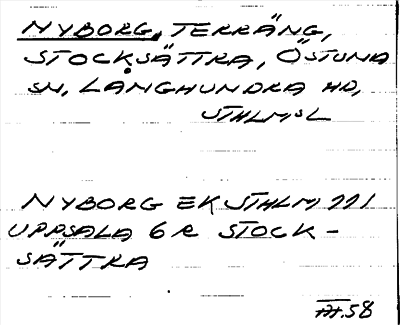 NYBORG, TERRÄNG,
STOCKSÄTTRA, ÖSTUNA
SN, LÅNGHUNDRA HD,
STHLMS L
NYBORG EK STHLM 221
UPPSALA 6 R STOCK-
SÄTTRA